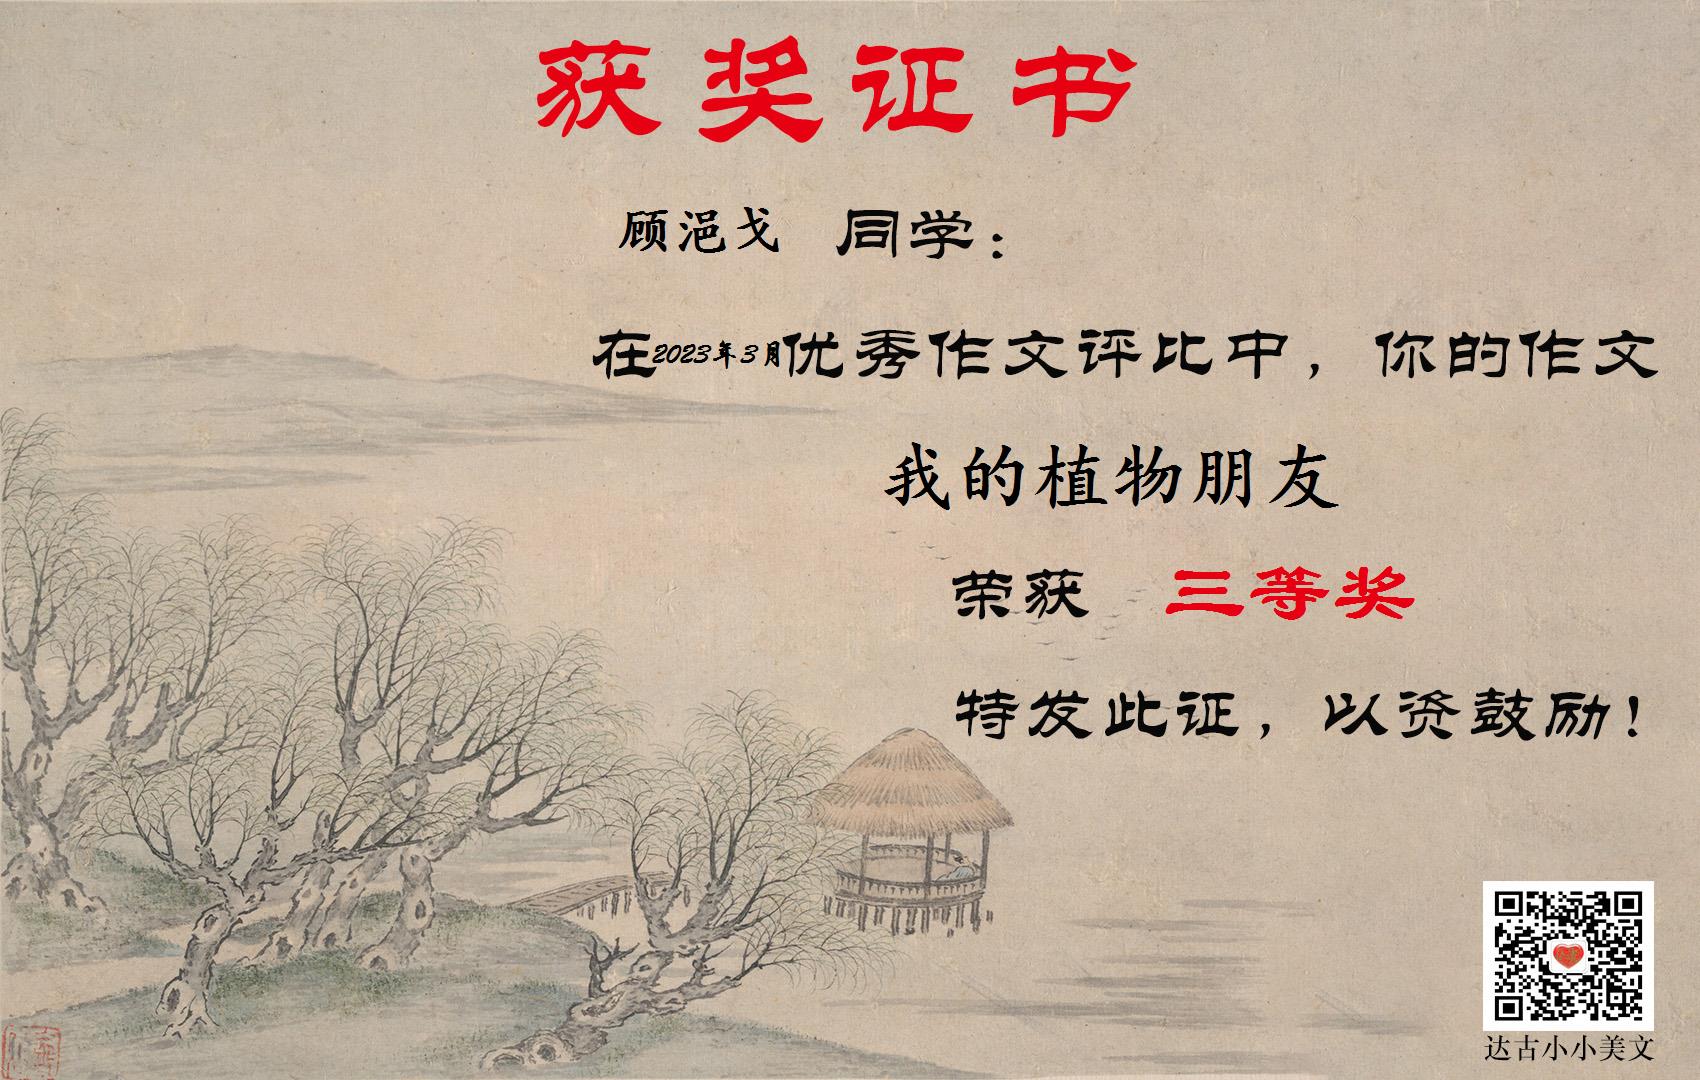 获奖证书
顾浥戈 同学：
在2023年3月优秀作文评比中，你的作文
我的植物朋友
荣获 三等奖
特发此证，以资鼓励！
达古小小美文